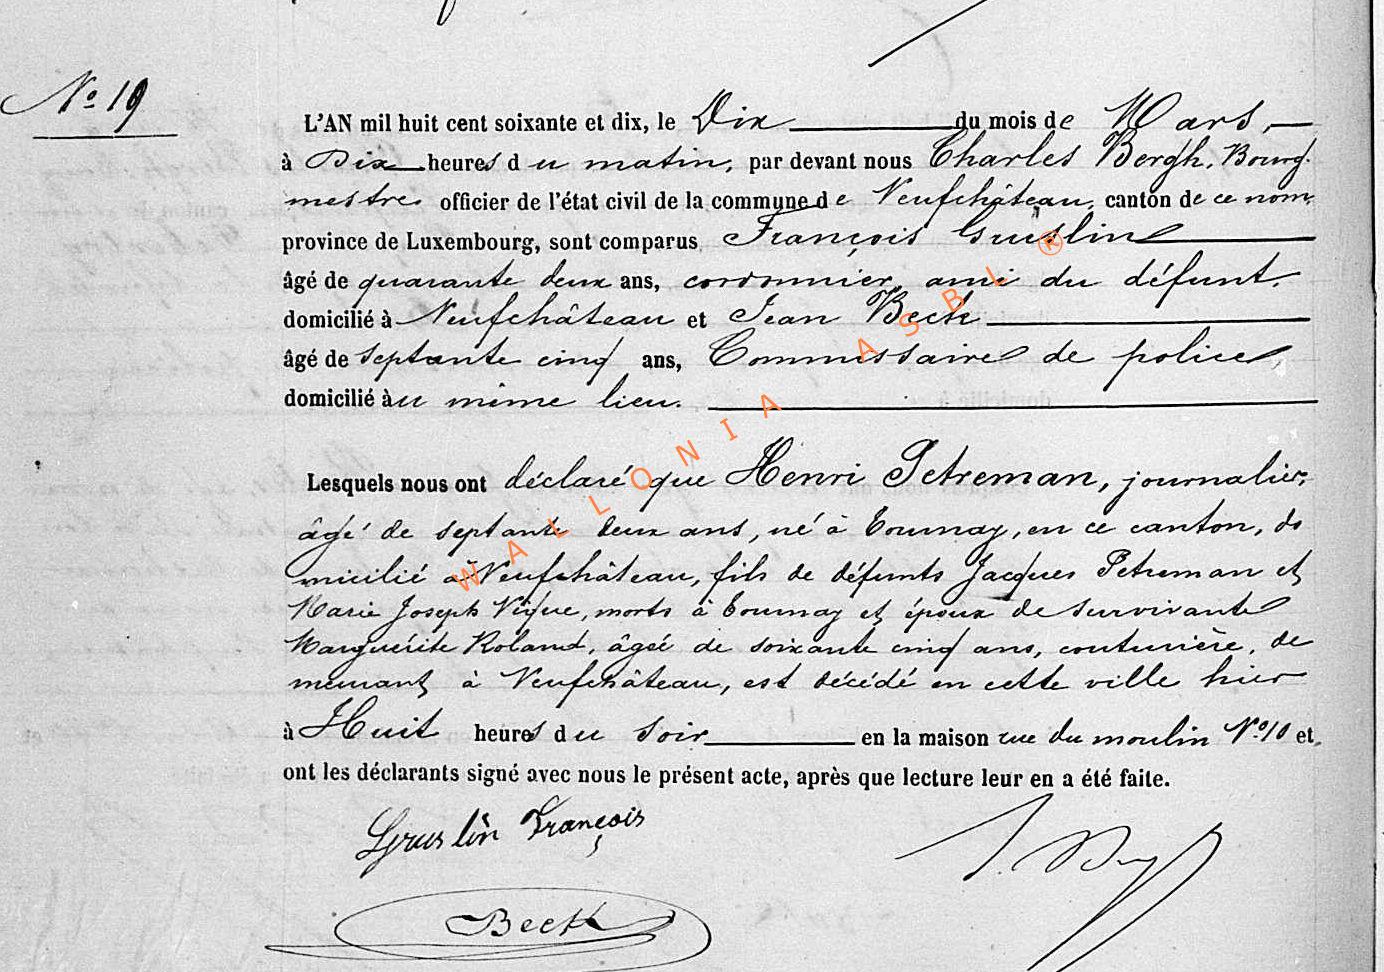 No 19
L'AN mil huit cent soixante et dix, le Dix du mois de Mars,
à Dix heures du matin, par devant nous Charles Bergh, Bourg-
mestre officier de l'état civil de la commune de Neufchâteau, canton de ce nom,
province de Luxembourg, sont comparus François Gruslin
âgé de quarante deux ans, cordonnier, ami du défunt,
domicilié à Neufchâteau et Jean Beck
âgé de septante cinq ans, Commissaire de police,
domicilié au même lieu.
Lesquels nous ont déclaré que Henri Petreman, journalier,
âgé de septante deux ans, né à Tournay, en ce canton, do
micilié à Neufchâteau, fils de défunts Jacques Petreman et
Marie Joseph Vique, morts à Tournay et époux de survivante
Marguérite Roland, âgée de soixante cinq ans, couturière, de
meurant à Neufchâteau, est décédé en cette ville hier
à Huit heures du soir en la maison rue du moulin No 10 et,
ont les déclarants signé avec nous le présent acte, après que lecture leur en a été faite.
Gruslin François
Beck
WALLONIA ASBL ®